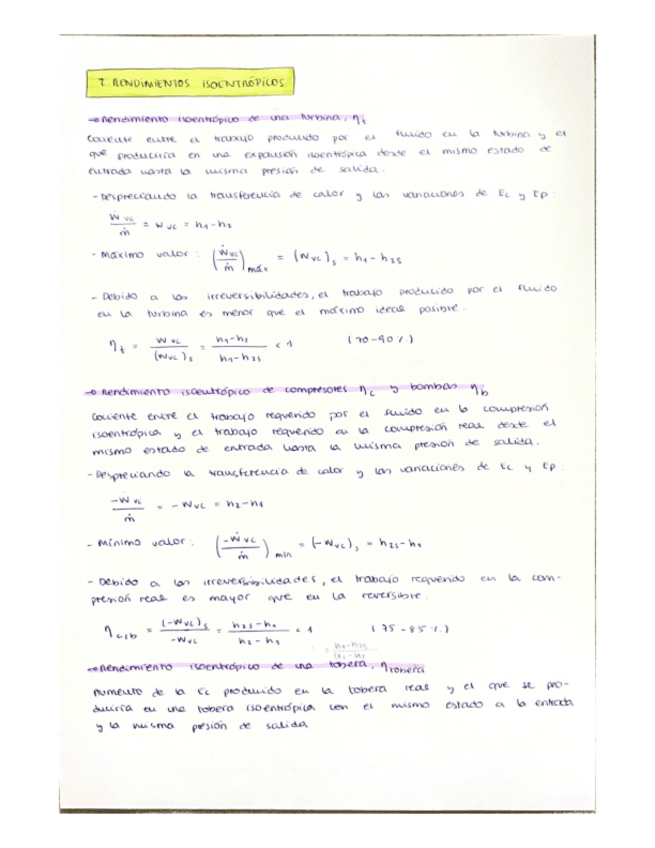 7. RENDIMIENTOS ISOENTRÓPICOS
→ Rendimiento isoentrópico de una turbina, ηt
Cociente entre el trabajo producido por el fluido en la turbina y el
que produciría en una expansión isoentrópica desde el mismo estado de
entrada hasta la misma presión de salida.
- Despreciando la transferencia de calor y las variaciones de Ec y Ep:
Ẇvc / ṁ = wvc = h1 - h2
- Máximo valor: (Ẇvc / ṁ)máx = (wvc)s = h1 - h2s
- Debido a las irreversibilidades, el trabajo producido por el fluido
en la turbina es menor que el máximo ideal posible.
ηt = wvc / (wvc)s = h1-h2 / h1-h2s < 1 (70-90%)
→ Rendimiento isoentrópico de compresores ηc y bombas ηb
Cociente entre el trabajo requerido por el fluido en la compresión
isoentrópica y el trabajo requerido en la compresión real desde el
mismo estado de entrada hasta la misma presión de salida.
- Despreciando la transferencia de calor y las variaciones de Ec y Ep:
-Ẇvc / ṁ = -wvc = h2-h1
- Mínimo valor: (-Ẇvc / ṁ)mín = (-wvc)s = h2s-h1
- Debido a las irreversibilidades, el trabajo requerido en la com-
presión real es mayor que en la reversible.
ηc/b = (-wvc)s / -wvc = h2s-h1 / h2-h1 < 1 (75-85%)
→ Rendimiento isoentrópico de una tobera, ηtobera
Aumento de la Ec producido en la tobera real y el que se pro-
duciría en una tobera isoentrópica con el mismo estado a la entrada
y la misma presión de salida